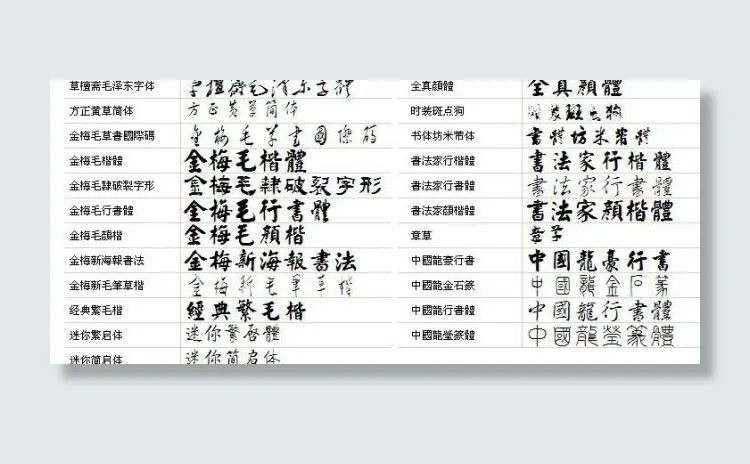 草檀斋毛泽东字体 草檀斋毛泽东字体
方正黄草简体 方正黄草简体
金梅毛草書國際碼 金梅毛草書國際碼
金梅毛楷體 金梅毛楷體
金梅毛隸破裂字形 金梅毛隸破裂字形
金梅毛行書體 金梅毛行書體
金梅毛顔楷 金梅毛顏楷
金梅新海報書法 金梅新海報書法
金梅新毛筆草楷 金梅新毛筆草楷
经典繁毛楷 經典繁毛楷
迷你繁启体 迷你繁啓體
迷你简启体 迷你简启体
全真顔體 全真顏體
时装斑点狗 时装斑点狗
书体坊米芾体 書體坊米芾體
書法家行楷體 書法家行楷體
書法家行書體 書法家行書體
書法家顔楷體 書法家顏楷體
章草 章草
中國龍豪行書 中國龍豪行書
中國龍金石篆 中國龍金石篆
中國龍行書體 中國龍行書體
中國龍瑩篆體 中國龍瑩篆體